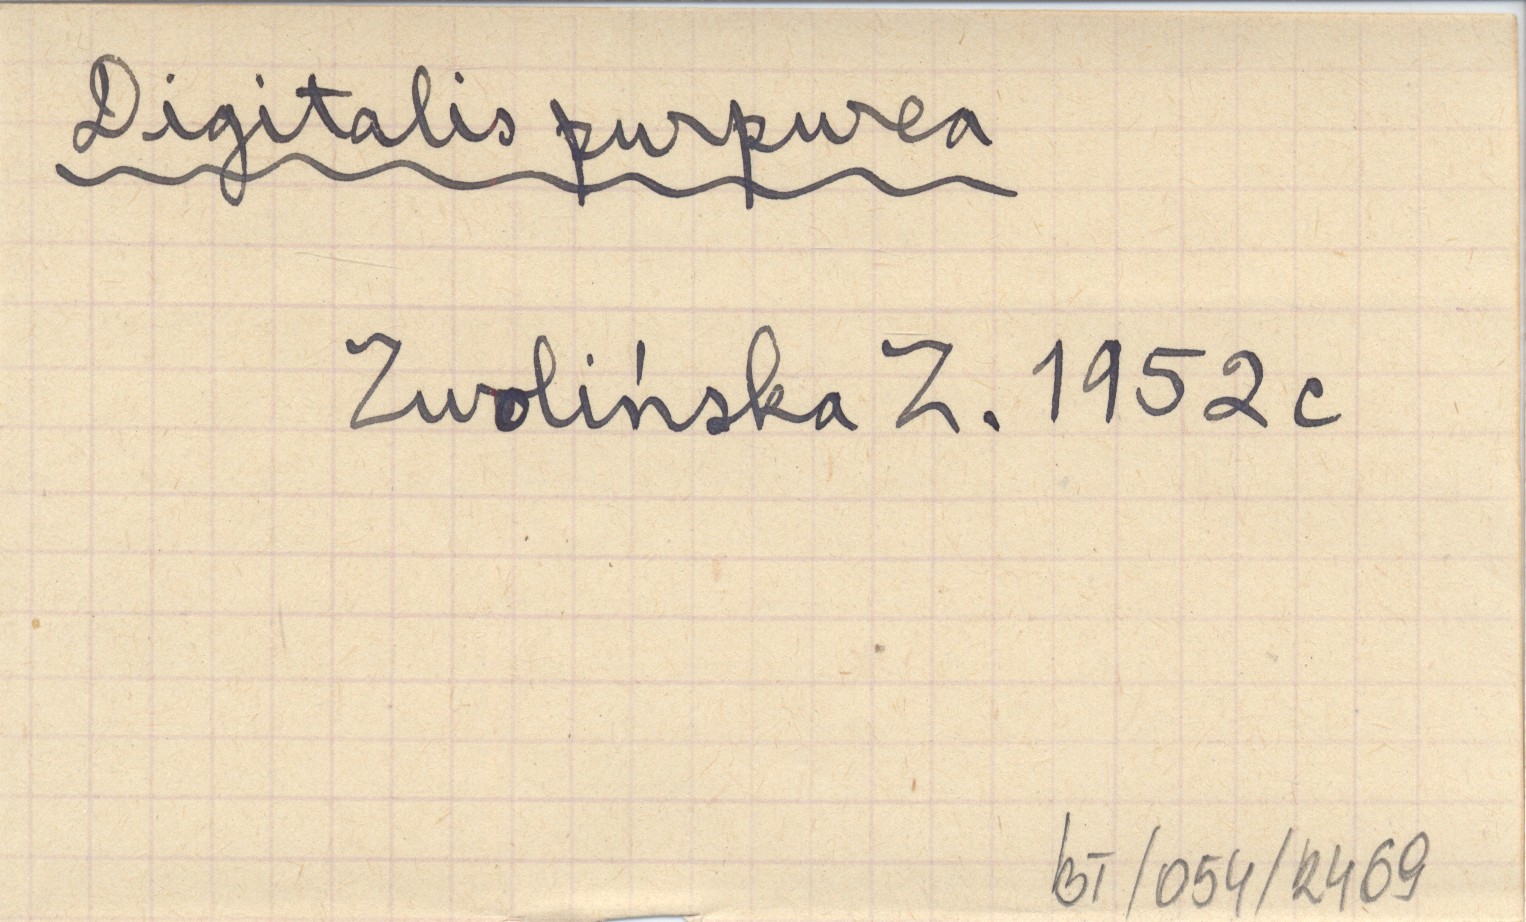 Digitalis purpurea
Zwolińska Z. 1952 c
BT/054/2469